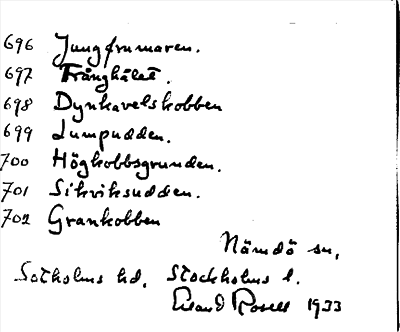 696 Jungfrumaren.
697 Trånghålet.
698 Dynkavelskobben
699 Lumpudden.
700 Högkobbsgrunden.
701 Sikviksudden.
702 Grankobben
Nämdö sn,
Sotholms hd. Stockholms l.
Erland Rosell 1933